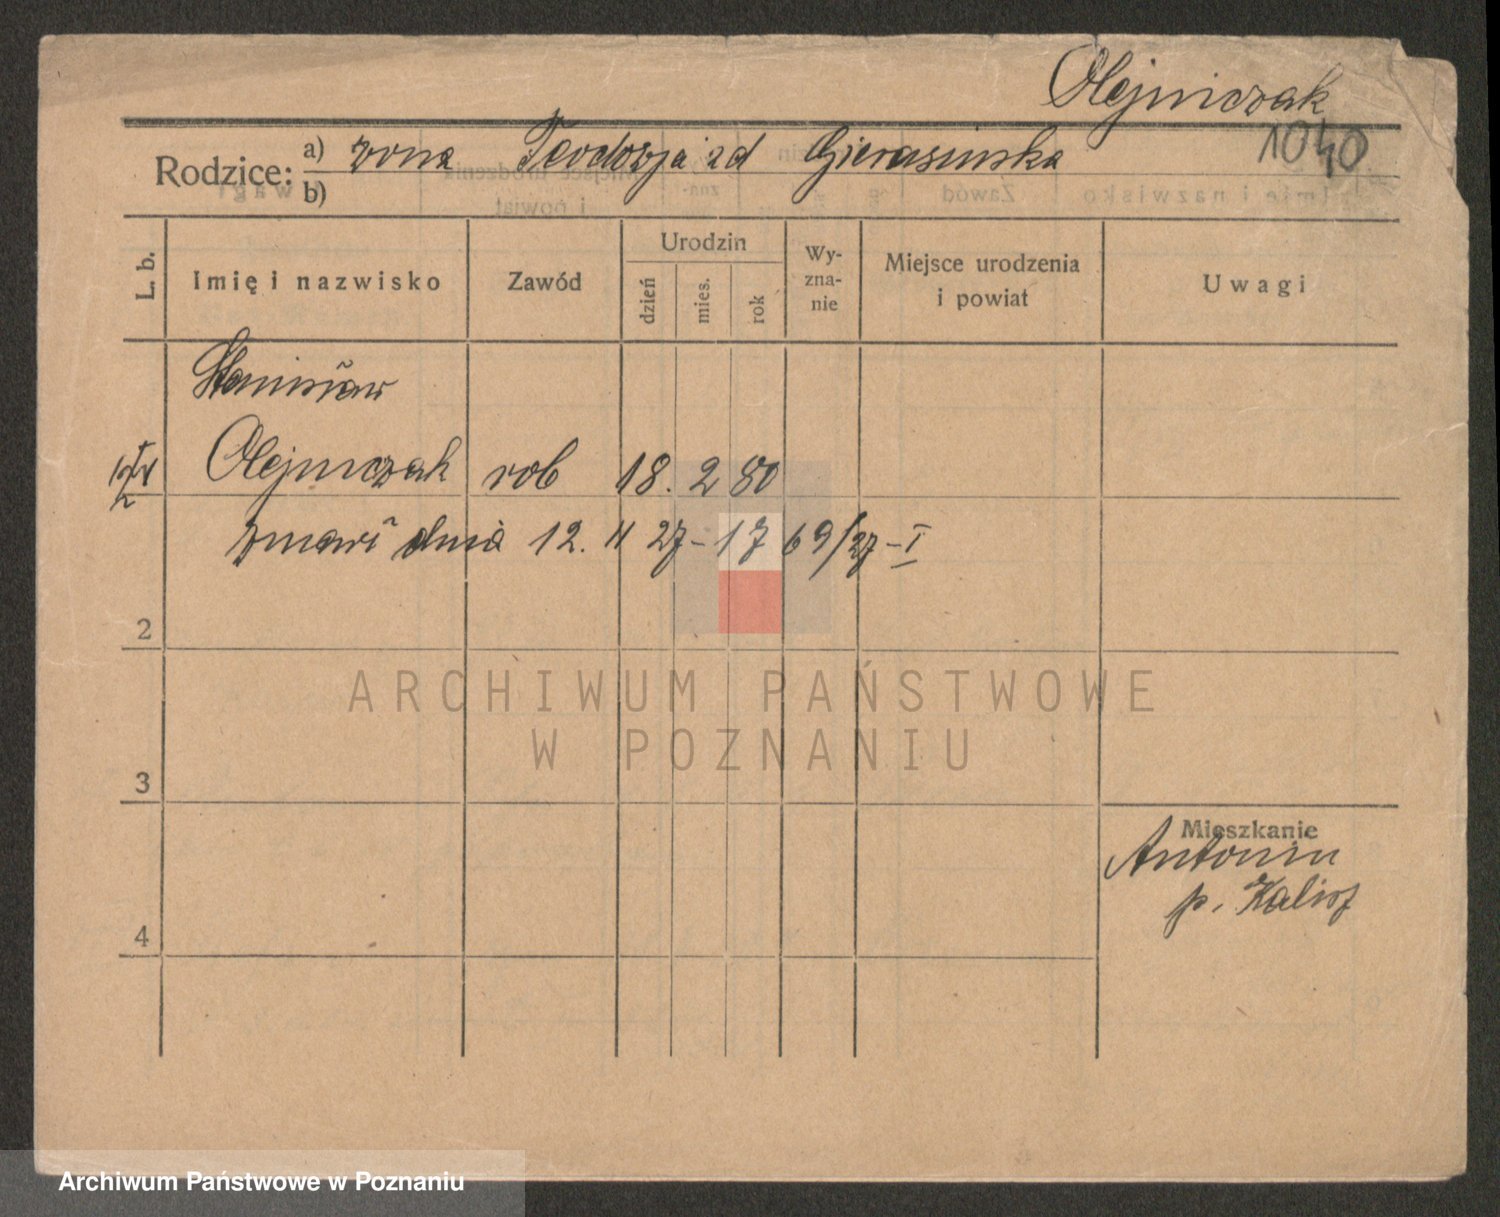 Olejniczak
1040
Rodzice: a) żona Teodozja zd Gierasińska
b)
L. b. Imię i nazwisko Zawód Urodzin dzień mies. rok Wy-zna-nie Miejsce urodzenia i powiat Uwagi
Stanisław
Olejniczak rob 18. 2 80
zmarł dnia 12. 4 27 - 1769/27 - I
2
3
4
Mieszkanie
Antonin
p. Kalisz
ARCHIWUM PAŃSTWOWE
W POZNANIU
Archiwum Państwowe w Poznaniu